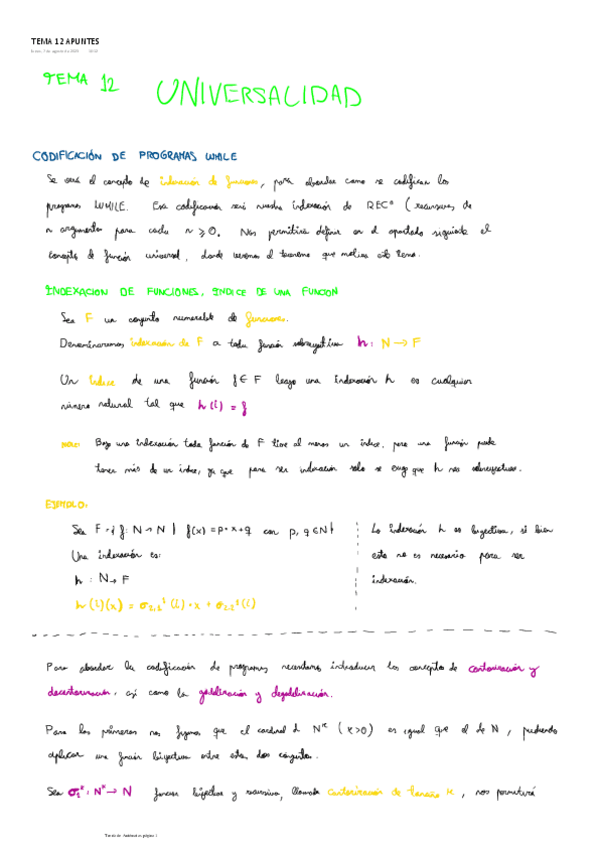 TEMA 12 APUNTES
TEMA 12 UNIVERSALIDAD
CODIFICACIÓN DE PROGRAMAS WHILE
Se verá el concepto de indexación de funciones, para abordar como se codifican los
programas WHILE. Esa codificación será nuestra indexación de REC (recursivas de
n argumentos para cada n ≥ 0. Nos permitirá definir en el apartado siguiente el
concepto de función universal, donde veremos el teorema que motiva este tema.
INDEXACION DE FUNCIONES. INDICE DE UNA FUNCION
Sea F un conjunto numerable de funciones.
Denominaremos indexación de F a toda función sobreyectiva h: N → F
Un índice de una función f ∈ F bajo una indexación h es cualquier
número natural tal que h(i) = f
Bajo una indexación toda función de F tiene al menos un índice, pero una función puede
tener más de un índice, ya que para ser indexación solo se exige que h sea sobreyectiva.
EJEMPLO:
Sea F = { f: N → N | f(x) = p·x+q con p, q ∈ N }
Una indexación es:
h : N → F
h(i)(x) = σ2,1²(i)·x + σ2,2²(i)
La indexación h es biyectiva, si bien
esto no es necesario para ser
indexación.
Para abordar la codificación de programas necesitamos introducir los conceptos de cantorización y
decantorización, así como la gödelización y degödelización.
Para los primeros nos fijamos que el cardinal de Nᵏ (k>0) es igual que el de N, pudiendo
aplicar una función biyectiva entre estos dos conjuntos.
Sea σ₁ᵏ: Nᵏ → N función biyectiva y recursiva, llamada cantorización de tamaño k, nos permitirá